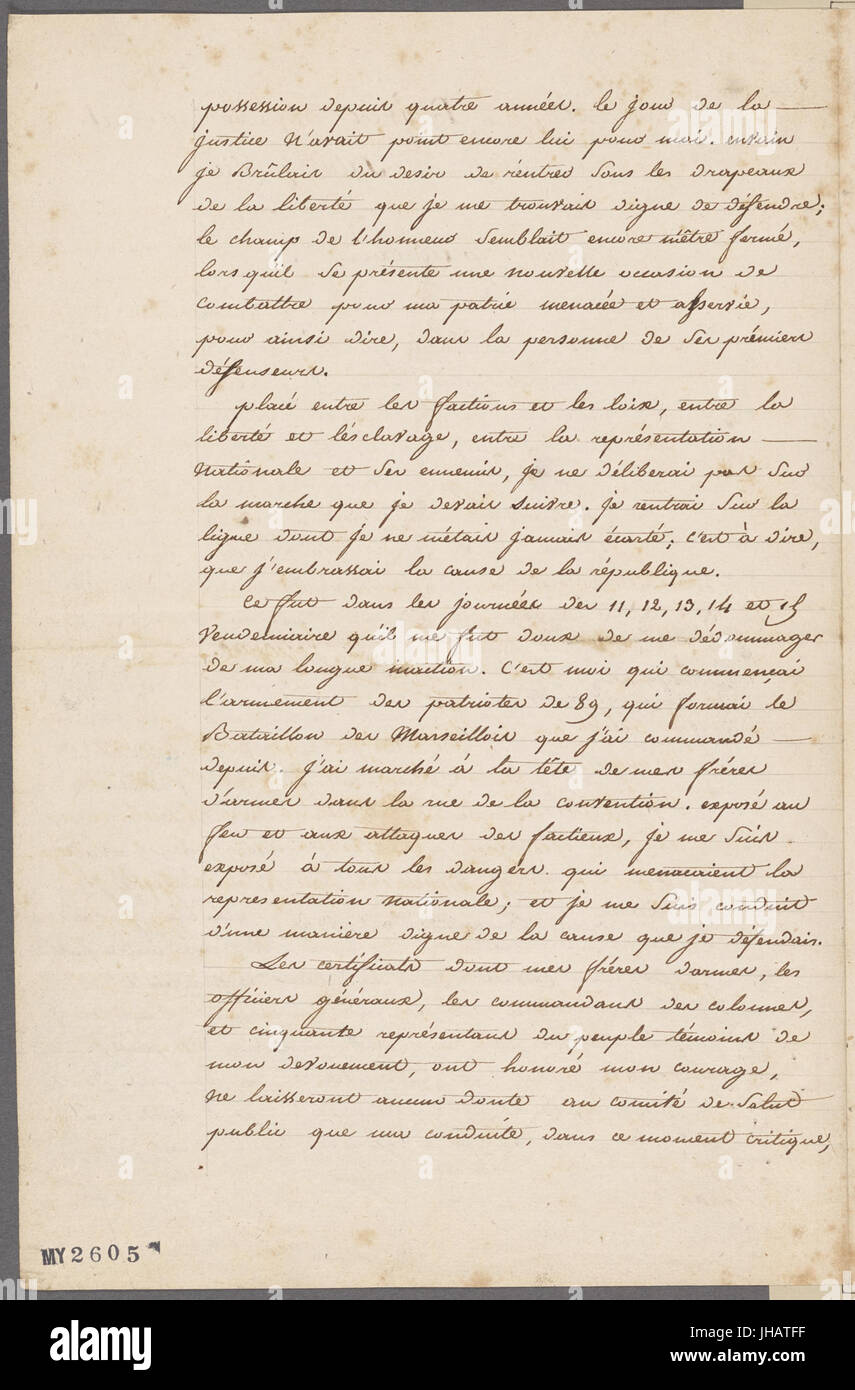 possession depuis quatre années. le jour de la —
justice n'avait point encore lui pour moi. envain
je Brûlais du desir de réntrer sous les drapeaux
de la liberté que je me trouvais digne de défendre;
le champ de l'honneur semblait encore m'être fermé,
lorsqu'il se présente une nouvelle occasion de
combattre pour ma patrie menacée et asservie,
pour ainsi dire, dans la personne de ses prémiers
défenseurs.
placé entre les factions et les loix, entre la
liberté et l'ésclavage, entre la représentation —
Nationale et ses ennemis, je ne déliberai pas sur
la marche que je devais suivre. je rentrai sur la
ligne dont je ne m'étais jamais écarté; c'est à dire,
que j'embrassai la cause de la république.
Ce fut dans les journées des 11, 12, 13, 14 et 15
Vendemiaire qu'il me fut doux de me dédommager
de ma longue inaction. C'est moi qui commençai
l'armement des patriotes de 89, qui formai le
Bataillon des Marseillois que j'ai commandé —
depuis. j'ai marché à la tête de mes fréres
d'armes dans la rue de la convention. exposé au
feu et aux attaques des factieux, je me suis
exposé à tous les dangers qui menacaient la
representation nationale; et je me suis conduit
d'une manière digne de la cause que je défendais.
Les certificats dont mes fréres d'armes, les
officiers généraux, les commandans des colonnes,
et cinquante représentans du peuple témoins de
mon devouement, ont honoré mon courage,
ne laisseront aucun doute au comité de Salut
public que ma conduite, dans ce moment critique,
MY2605
alamy
alamy stock photo
JHATFF
www.alamy.com